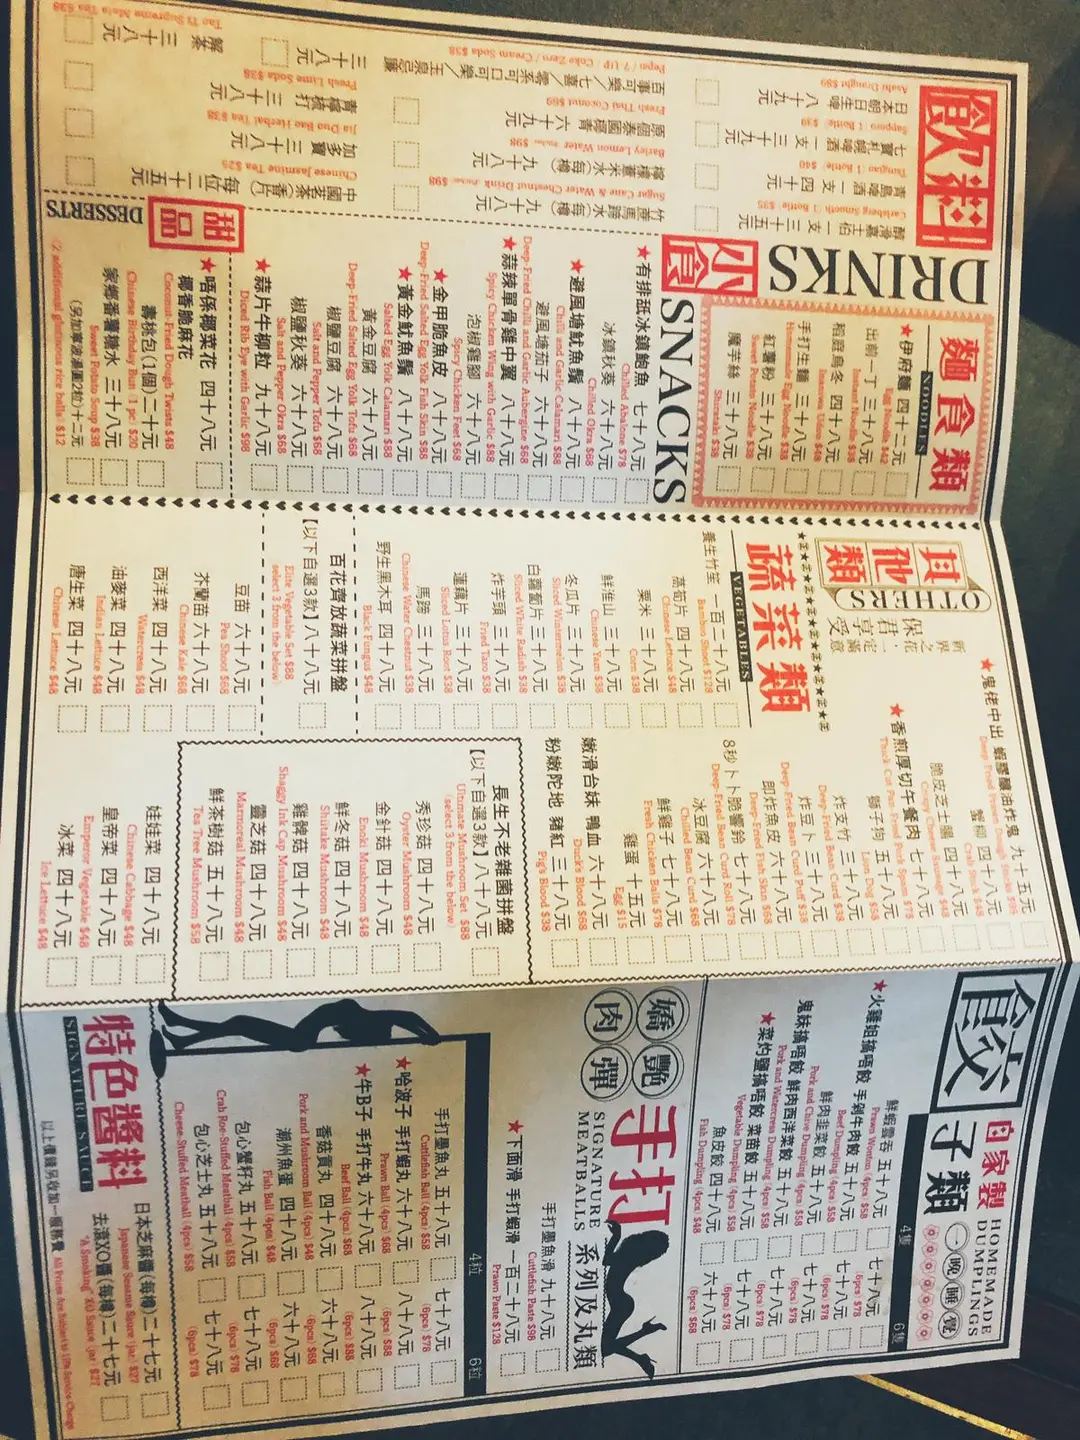 飲料
DRINKS
日本朝日生啤 八十九元
Asahi Draught $89
七寶札幌啤酒 一支 三十九元
Sapporo (1 Bottle) $39
青島啤酒 一支 四十元
Tsingtao (1 Bottle) $40
醇滑嘉士伯 一支 三十五元
Carlsberg Smooth (1 Bottle) $35
Pepsi / 7 UP / Coke Zero / Cream Soda $38
原個泰國椰青 六十九元
Fresh Thai Coconut $69
檸檬薏米水(每樽) 九十八元
Barley Lemon Water $98
竹蔗馬蹄水(每樽) 九十八元
Sugar Cane & Water Chestnut Drink $98
解茶 三十八元
Tao Ti Supreme Meta Tea $38
青檸梳打 三十八元
Fresh Lime Soda $38
加多寶 三十八元
Jia Duo Bao Herbal Tea $38
中國茗茶(香片) 每位二十五元
Chinese Jasmine Tea $25
麵食類
NOODLES
★伊府麵 四十二元
Egg Noodle $42
出前一丁 三十八元
Instant Noodle $38
稻庭烏冬 四十八元
Inaniwa Udon $48
手打生麵 三十八元
Homemade Egg Noodle $38
紅薯粉 三十八元
Sweet Potato Noodle $38
魔芋絲 三十八元
Shirataki $38
小食
SNACKS
★有排舐冰鎮鮑魚 七十八元
Chilled Abalone $78
冰鎮秋葵 六十八元
Chilled Okra $68
★避風塘魷魚鬚 八十八元
Chilli and Garlic Calamari $88
避風塘茄子 六十八元
Deep-Fried Chilli and Garlic Aubergine $68
★蒜辣單骨雞中翼 八十八元
Spicy Chicken Wing with Garlic $88
泡椒雞腳 六十八元
Spicy Chicken Feet $68
★金甲脆魚皮 八十八元
Deep-Fried Salted Egg Yolk Fish Skin $88
★黃金魷魚鬚 八十八元
Salted Egg Yolk Calamari $88
黃金豆腐 六十八元
Deep-Fried Salted Egg Yolk Tofu $68
椒鹽豆腐 六十八元
Salt and Pepper Tofu $68
椒鹽秋葵 六十八元
Salt and Pepper Okra $68
★蒜片牛柳粒 九十八元
Diced Rib Eye with Garlic $98
甜品
DESSERTS
★唔係椰菜花 四十八元
椰香脆麻花
Coconut-Fried Dough Twists $48
壽桃包(1個)二十元
Chinese Birthday Bun (1 pc) $20
家鄉番薯糖水 三十八元
Sweet Potato Soup $38
(另加寧波湯圓2粒)+十二元
(2 additional glutinous rice balls) $12
其他類
OTHERS
保君享受
蔬菜類
VEGETABLES
養生竹笙 一百二十八元
Bamboo Shoot $128
萵筍片 四十八元
Chinese Lettuce $48
粟米 三十八元
Corn $38
鮮淮山 三十八元
Chinese Yam $38
冬瓜片 三十八元
Sliced Wintermelon $38
白蘿蔔片 三十八元
Sliced White Radish $38
炸芋頭 三十八元
Fried Taro $38
蓮藕片 三十八元
Sliced Lotus Root $38
馬蹄 三十八元
Chinese Water Chestnut $38
野生黑木耳 四十八元
Black Fungus $48
百花齊放蔬菜拼盤
【以下自選3款】八十八元
Elite Vegetable Set $88
(select 3 from the below)
豆苗 六十八元
Pea Shoot $68
芥蘭苗 六十八元
Chinese Kale $68
西洋菜 四十八元
Watercress $48
油麥菜 四十八元
Indian Lettuce $48
唐生菜 四十八元
Chinese Lettuce $48
★鬼佬中出 蝦膠釀油炸鬼 九十五元
Deep Fried Prawn Dough Sticks $95
蟹柳 四十八元
Crab Stick $48
脆皮芝士腸 四十八元
Crispy Cheese Sausage $48
★香煎厚切午餐肉 七十八元
Thick Cut Pan-Fried Pork Spam $78
獅子狗 五十八元
Lion Dog $58
炸支竹 三十八元
Deep-Fried Bean Curd $38
炸豆卜 三十八元
Deep-Fried Bean Curd Puff $38
即炸魚皮 六十八元
Deep-Fried Fish Skin $68
8秒卜卜脆響鈴 七十八元
Deep-Fried Bean Curd Roll $78
冰豆腐 六十八元
Chilled Bean Curd $68
鮮雞子 七十八元
Fresh Chicken Balls $78
雞蛋 十五元
Egg $15
嫩滑台妹 鴨血 六十八元
Duck's Blood $68
粉嫩陀地 豬紅 三十八元
Pig's Blood $38
長生不老雜菌拼盤
【以下自選3款】八十八元
Ultimate Mushroom Set $88
(select 3 from the below)
秀珍菇 四十八元
Oyster Mushroom $48
金針菇 四十八元
Enoki Mushroom $48
鮮冬菇 四十八元
Shiitake Mushroom $48
雞髀菇 四十八元
Shaggy Ink Cap Mushroom $48
靈芝菇 四十八元
Marmoreal Mushroom $48
鮮茶樹菇 五十八元
Tea Tree Mushroom $58
娃娃菜 四十八元
Chinese Cabbage $48
皇帝菜 四十八元
Emperor Vegetable $48
冰菜 四十八元
Ice Lettuce $48
餃子類
自家製
HOMEMADE
DUMPLINGS
一晚瞓覺
4隻
6隻
鮮蝦雲吞 五十八元 七十八元
Prawn Wonton (4pcs) $58 (6pcs) $78
★火雞姐搞唔餃 手剁牛肉餃 五十八元 七十八元
Beef Dumpling (4pcs) $58 (6pcs) $78
鮮肉韭菜餃 五十八元 七十八元
Pork and Chive Dumpling (4pcs) $58 (6pcs) $78
鬼妹搞唔餃 鮮肉西洋菜餃 五十八元 七十八元
Pork and Watercress Dumpling (4pcs) $58 (6pcs) $78
★菜灼鹽搞唔餃 菜苗餃 五十八元 七十八元
Vegetable Dumpling (4pcs) $58 (6pcs) $78
魚皮餃 四十八元 六十八元
Fish Dumpling (4pcs) $48 (6pcs) $68
嬌艷肉彈
手打
系列及丸類
SIGNATURE
MEATBALLS
手打墨魚滑 九十八元
Cuttlefish Paste $98
★下面滑 手打蝦滑 一百二十八元
Prawn Paste $128
4粒
6粒
手打墨魚丸 五十八元 七十八元
Cuttlefish Ball (4pcs) $58 (6pcs) $78
★哈波子 手打蝦丸 六十八元 八十八元
Prawn Ball (4pcs) $68 (6pcs) $88
★牛B子 手打牛丸 六十八元 八十八元
Beef Ball (4pcs) $68 (6pcs) $88
香菇貢丸 四十八元 六十八元
Pork and Mushroom Ball (4pcs) $48 (6pcs) $68
潮州魚蛋 四十八元 六十八元
Fish Ball (4pcs) $48 (6pcs) $68
包心蟹籽丸 五十八元 七十八元
Crab Roe-Stuffed Meatball (4pcs) $58 (6pcs) $78
包心芝士丸 五十八元 七十八元
Cheese-Stuffed Meatball (4pcs) $58 (6pcs) $78
特色醬料
SIGNATURE SAUCE
日本芝麻醬(每樽)二十七元
Japanese Sesame Sauce (jar) $27
去濕XO醬(每樽)二十七元
"A Smoking" XO Sauce (jar) $27
以上價錢另收加一服務費 All Prices Are Subject to 10% Service Charge